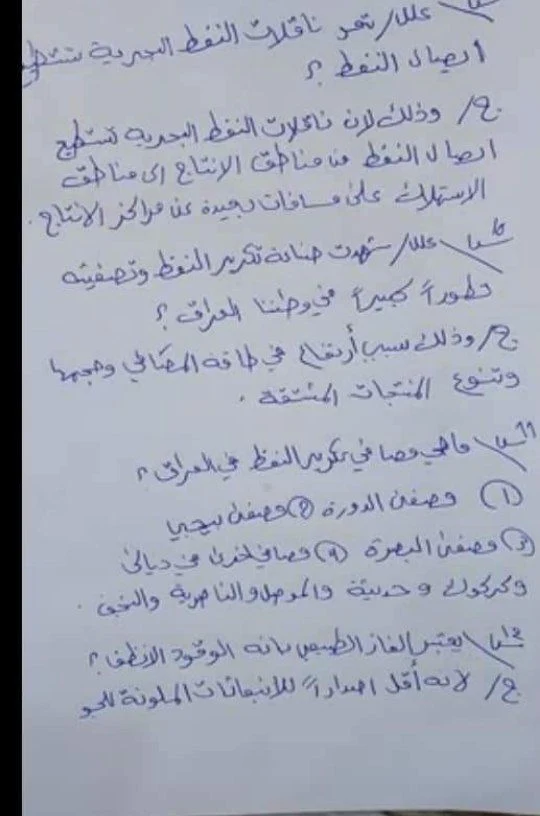 علل / تعد ناقلات النفط البحرية تستطيع
ايصال النفط ؟
ج / وذلك لان ناقلات النفط البحرية تستطيع
ايصال النفط من مناطق الانتاج الى مناطق
الاستهلاك على مسافات بعيدة عن مراكز الانتاج .
س١٠ علل / شهدت صناعة تكرير النفط وتصفيته
تطوراً كبيراً في وطننا العراق ؟
ج / وذلك بسبب أرتفاع في طاقة المصافي وحجمها
وتنوع المنتجات المشتقة .
س١١ ماهي مصافي تكرير النفط في العراق ؟
١) مصفى الدورة ٢) مصفى بيجي
٣) مصفى البصرة ٤) مصافي اخرى في ديالى
وكركوك و حديثة والموصل والناصرية والنجف .
س١٢ يعتبر الغاز الطبيعي بانه الوقود الانظف ؟
ج / لانه أقل اصداراً للانبعاثات الملوثة للجو